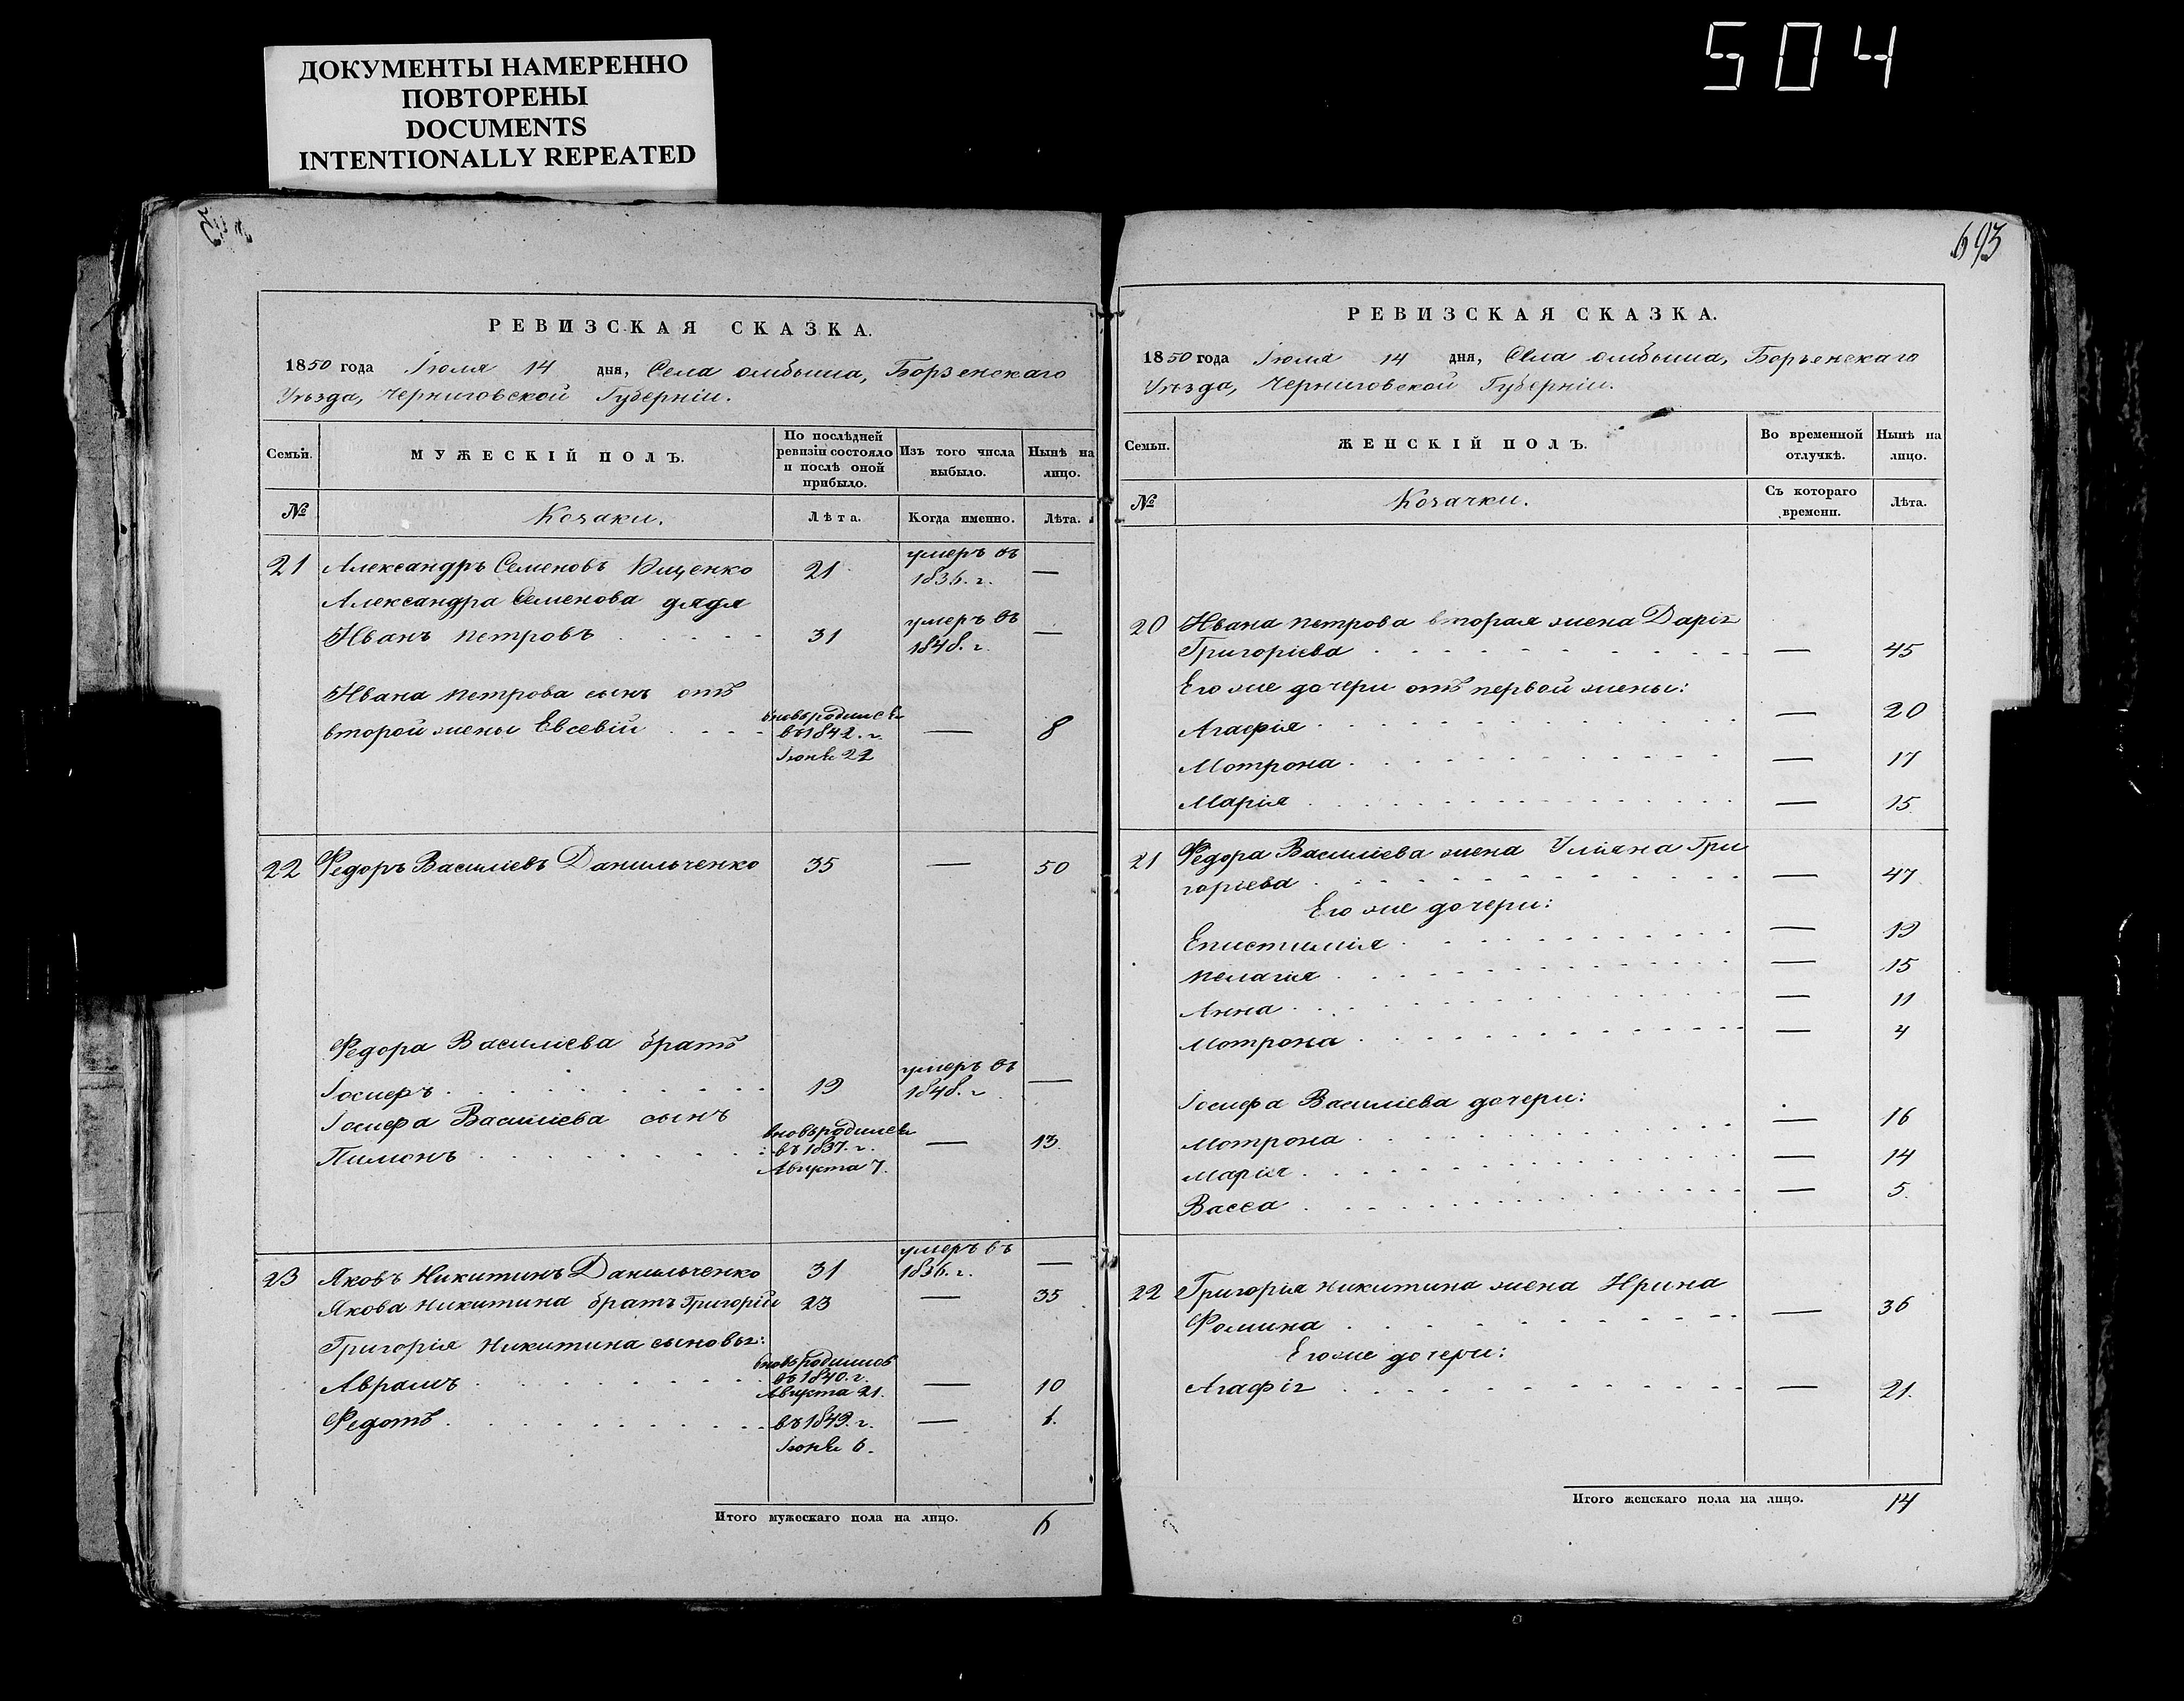 504
ДОКУМЕНТЫ НАМЕРЕННО
ПОВТОРЕНЫ
DOCUMENTS
INTENTIONALLY REPEATED
РЕВИЗСКАЯ СКАЗКА.
1850 года Іюля 14 дня, Села Омбыша, Борзенскаго
Уѣзда, Черниговской Губерніи.
Семьи.
МУЖЕСКІЙ ПОЛЪ.
По послѣдней
ревизіи состояло
и послѣ оной
прибыло.
Изъ того числа
выбыло.
Нынѣ на
лицо.
№
Козаки.
Лѣта.
Когда именно.
Лѣта.
21 Александръ Семеновъ Ищенко 21 умеръ въ
1836. г. —
Александра Семенова дядя
Иванъ Петровъ 31 умеръ въ
1848. г. —
Ивана Петрова сынъ отъ
второй жены Евсевій вновьродился
въ 1842. г.
Іюня 22 — 8
22 Федоръ Василіевъ Данильченко 35 — 50
Федора Василіева братъ
Іосифъ 19 умеръ въ
1848. г. —
Іосифа Василіева сынъ
Пименъ вновьродился
въ 1837. г.
Августа 7. — 13.
23 Яковъ Никитинъ Данильченко 31 умеръ въ
1836. г. —
Якова Никитина братъ Григорій 23 — 35
Григорія Никитина сыновья:
Аврамъ вновьродились
въ 1840. г.
Августа 21. — 10
Федотъ въ 1849. г.
Іюня 6. — 1.
Итого мужескаго пола на лицо. 6
693
РЕВИЗСКАЯ СКАЗКА.
1850 года Іюля 14 дня, Села Омбыша, Борзенскаго
Уѣзда, Черниговской Губерніи.
Семьи.
ЖЕНСКІЙ ПОЛЪ.
Во временной
отлучкѣ.
Нынѣ на
лицо.
№
Козачки.
Съ котораго
времени.
Лѣта.
20 Ивана Петрова вторая жена Дарія
Григоріева — 45
Его же дочери отъ первой жены:
Агафія — 20
Мотрона — 17
Марія — 15
21 Федора Василіева жена Уліяна Гри
горіева — 47
Его же дочери:
Епистимія — 19
Пелагія — 15
Анна — 11
Мотрона — 4
Іосифа Василіева дочери:
Мотрона — 16
Марія — 14
Васса — 5.
22 Григорія Никитина жена Ирина
Фомина — 36
Его же дочери:
Агафія — 21.
Итого женскаго пола на лицо. 14